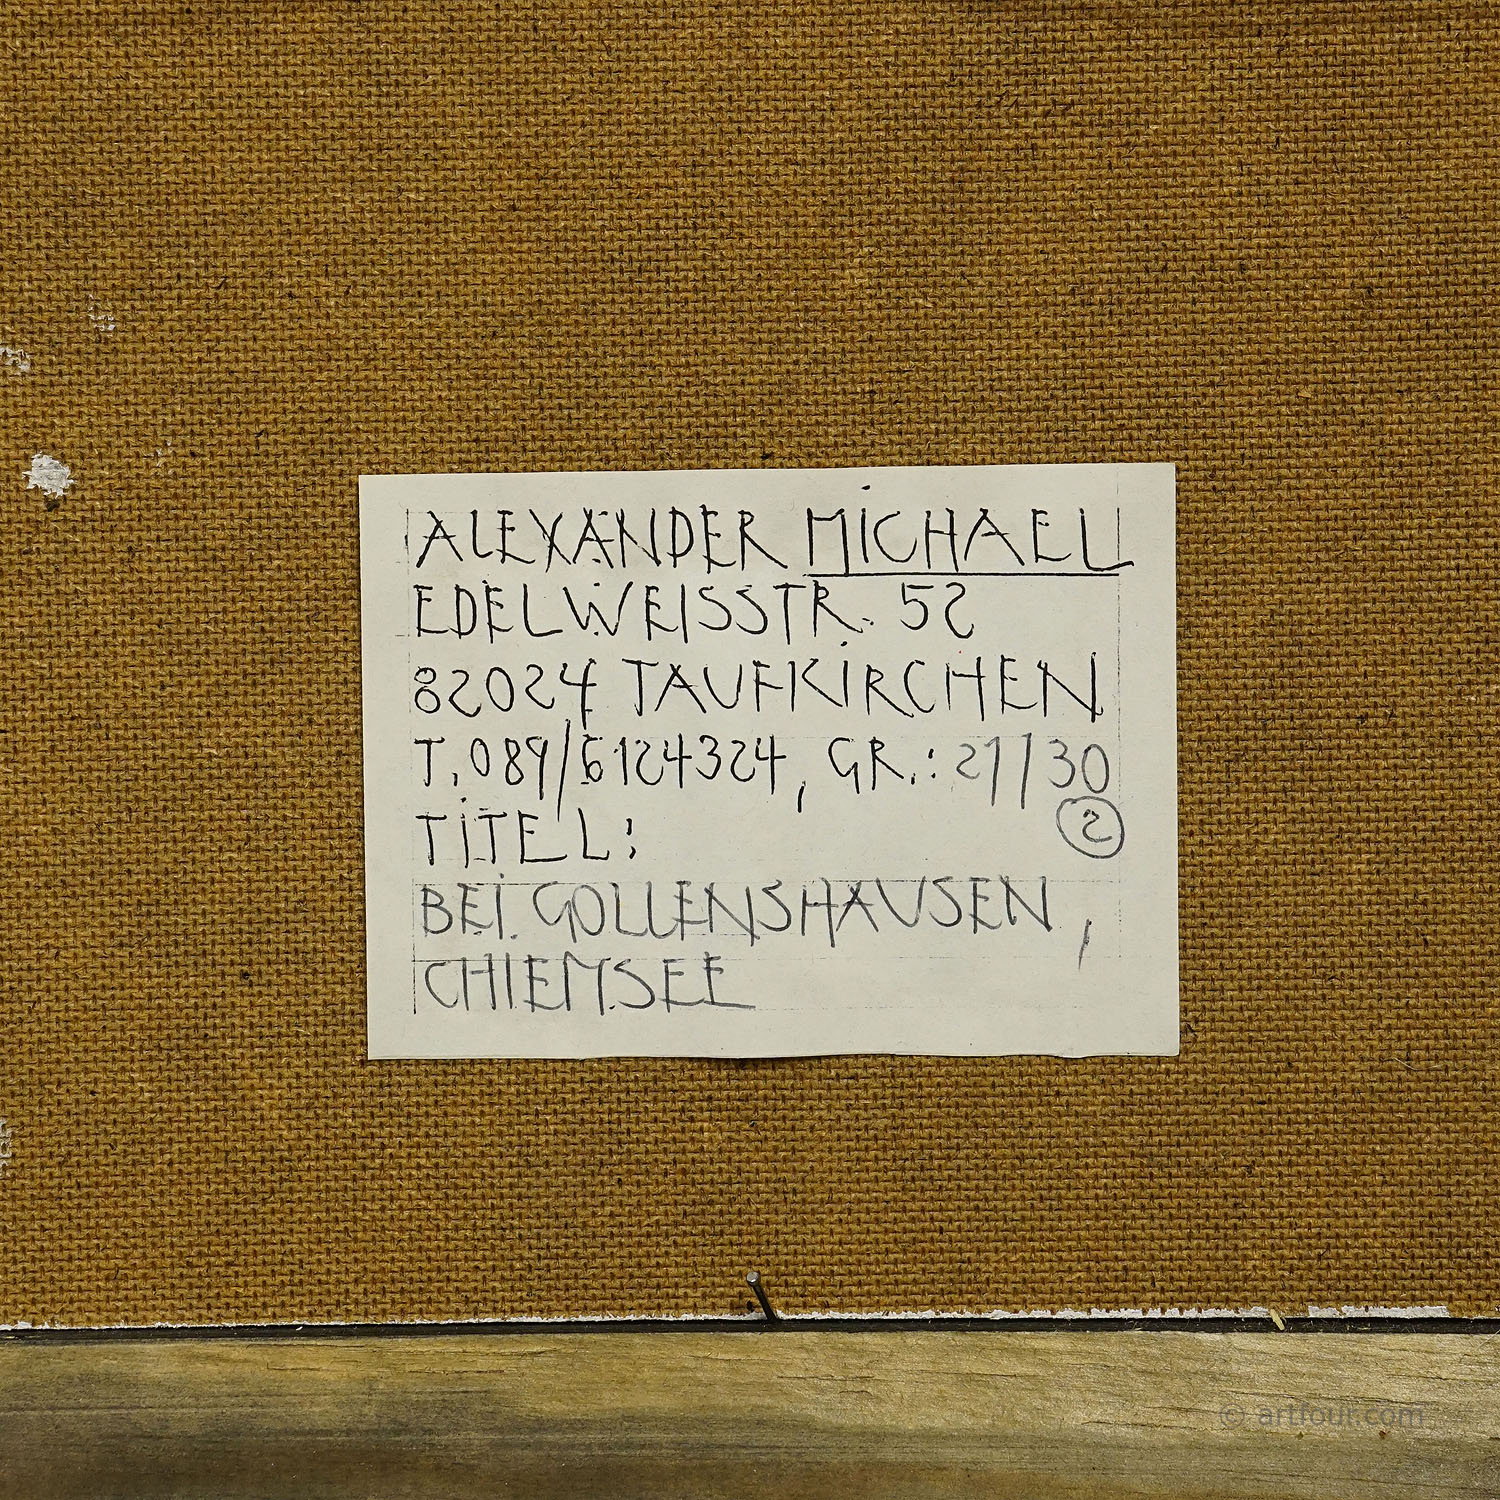 ALEXANDER MICHAEL
EDELWEISSTR. 52
82024 TAUFKIRCHEN
T. 089/6124324, GR.: 21/30
TITEL:
②
BEI GOLLENSHAUSEN,
CHIEMSEE
© artfour.com